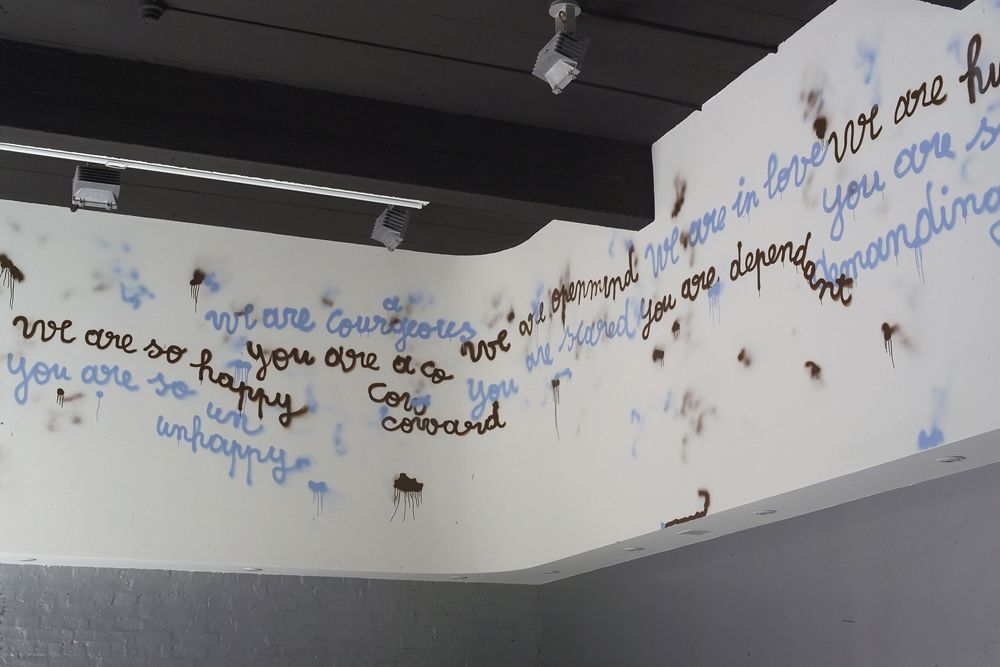 we are so happy
you are so un
unhappy
a
we are courgeous
you are a co
cow
coward
we are openmind
you are scared
we are in love
you are dependant
we are hu
you are s
demanding